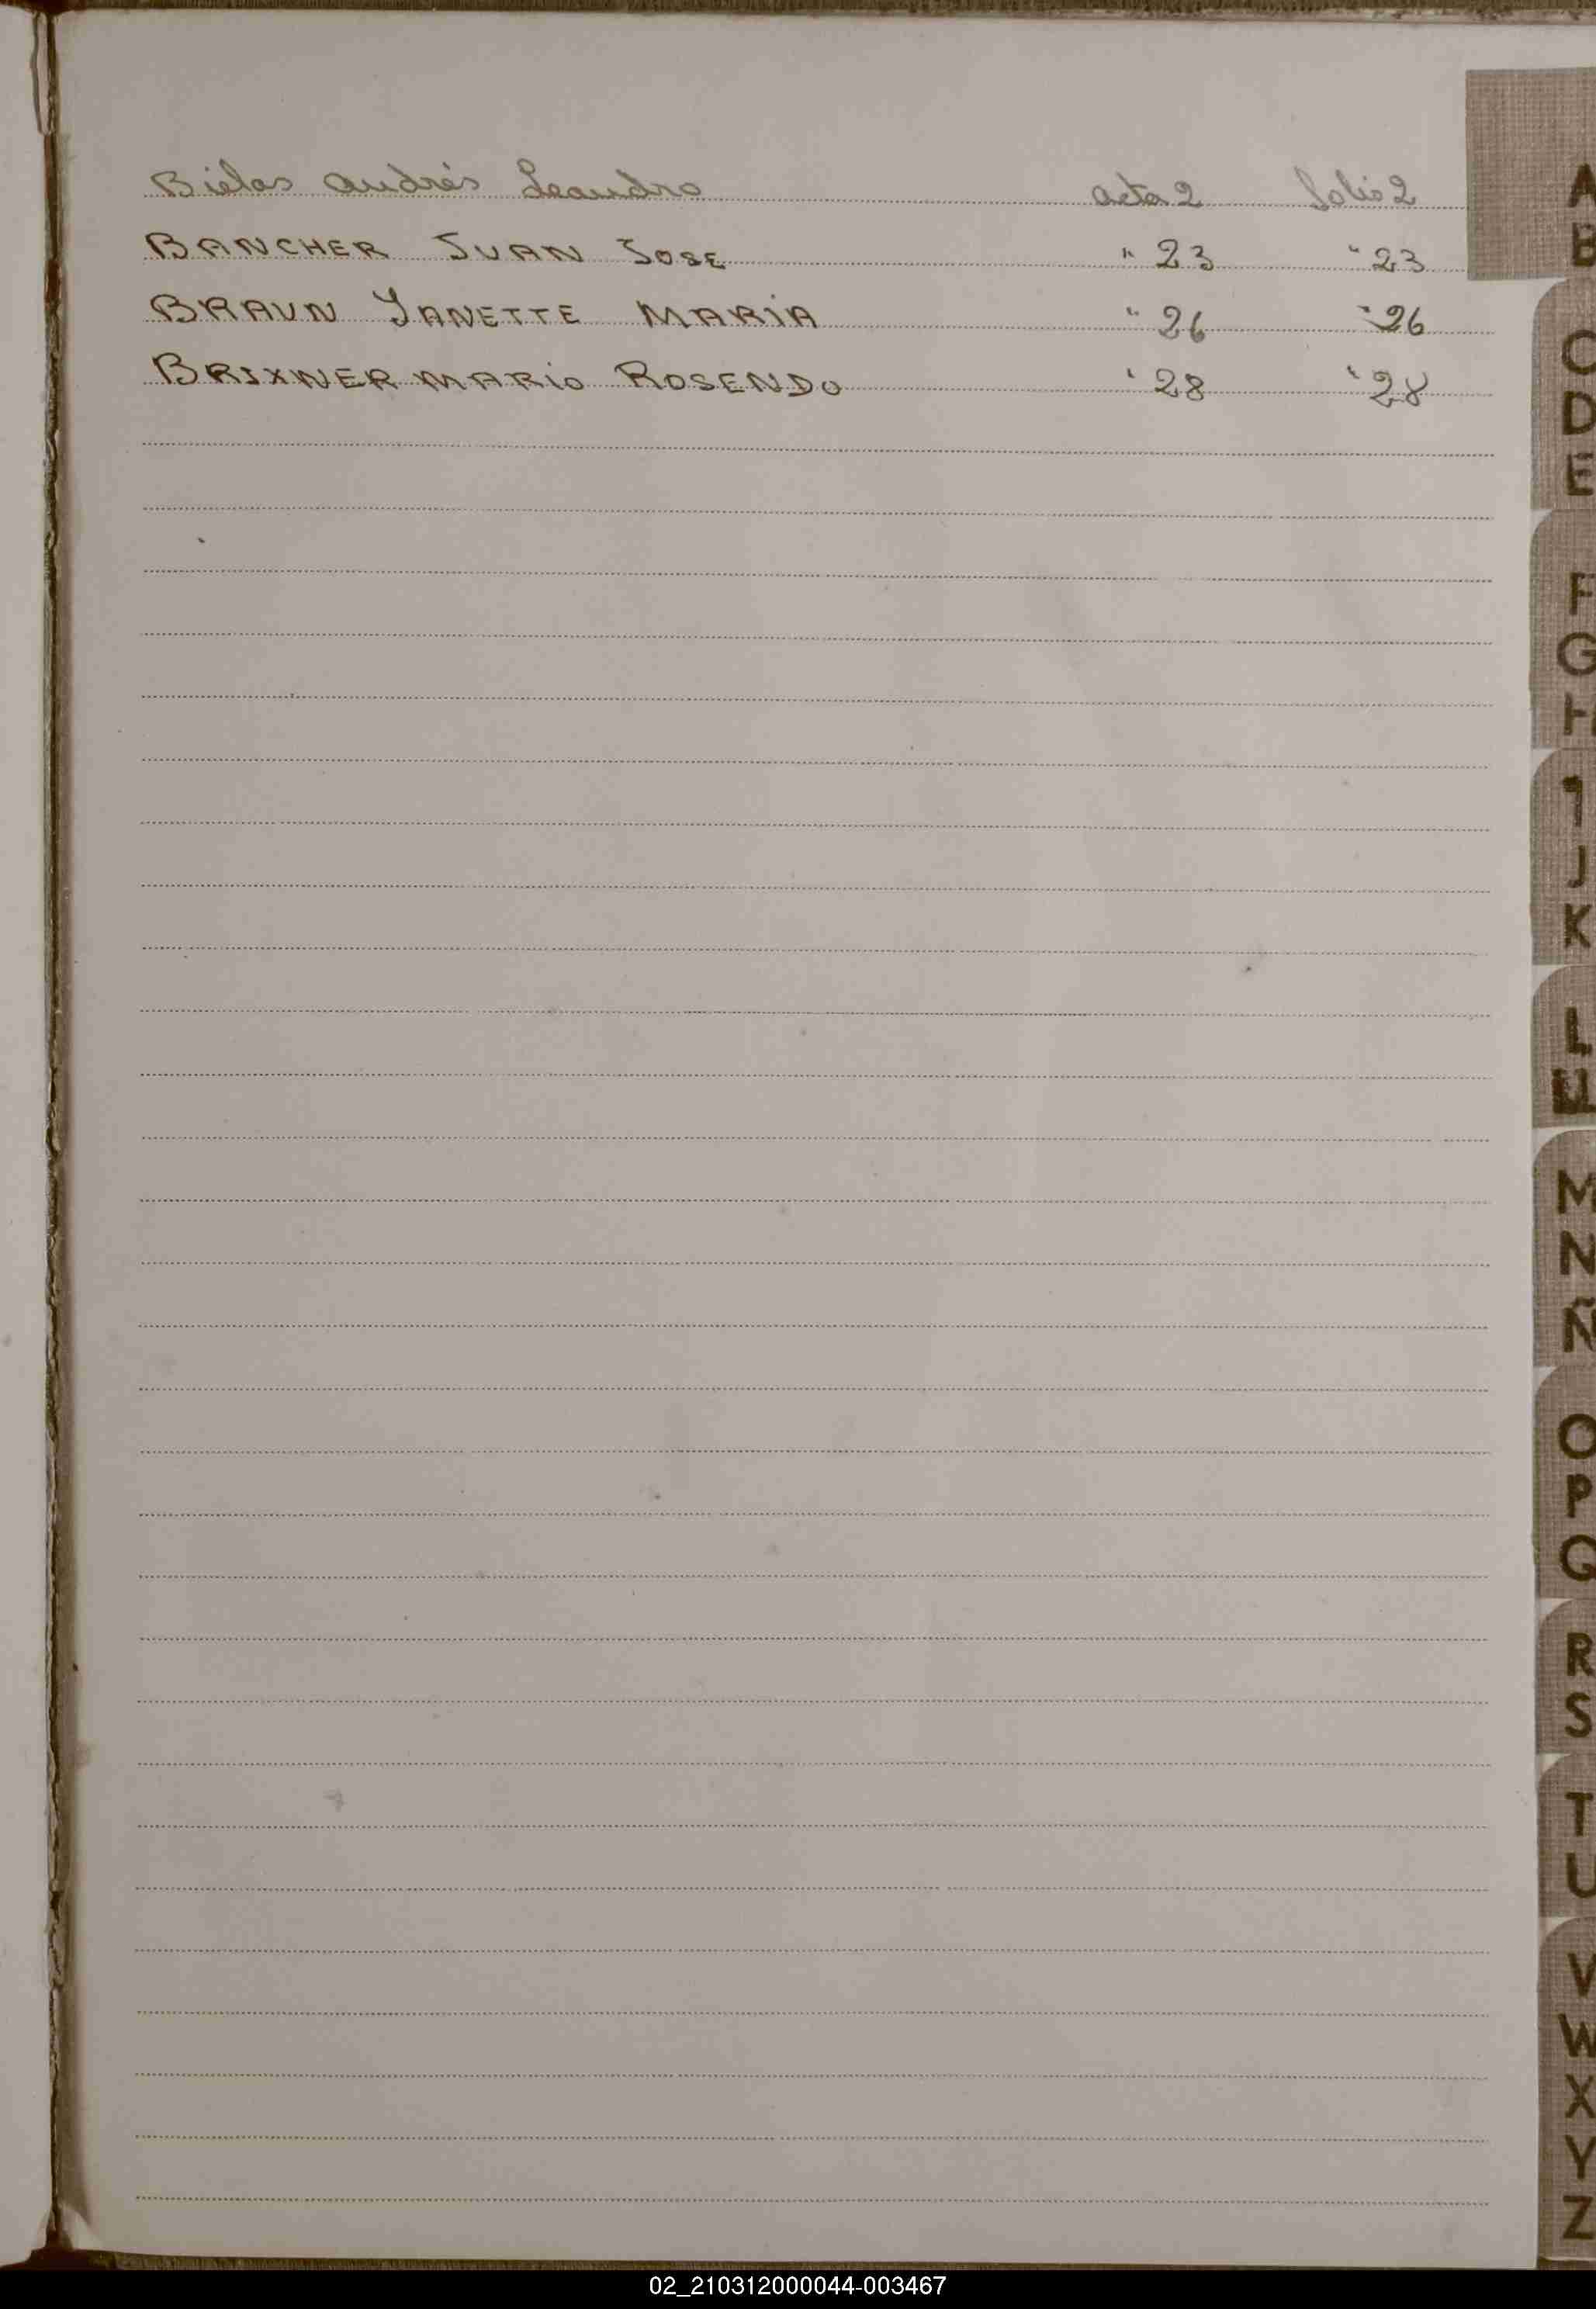 Bielas Andrés Leandro acta 2 folio 2
BANCHER JUAN JOSE " 23 " 23
BRAUN YANETTE MARIA " 26 " 26
BRIXNER MARIO ROSENDO " 28 " 28
A
B
C
D
E
F
G
H
I
J
K
L
M
N
Ñ
O
P
Q
R
S
T
U
V
W
X
Y
Z
02_210312000044-003467